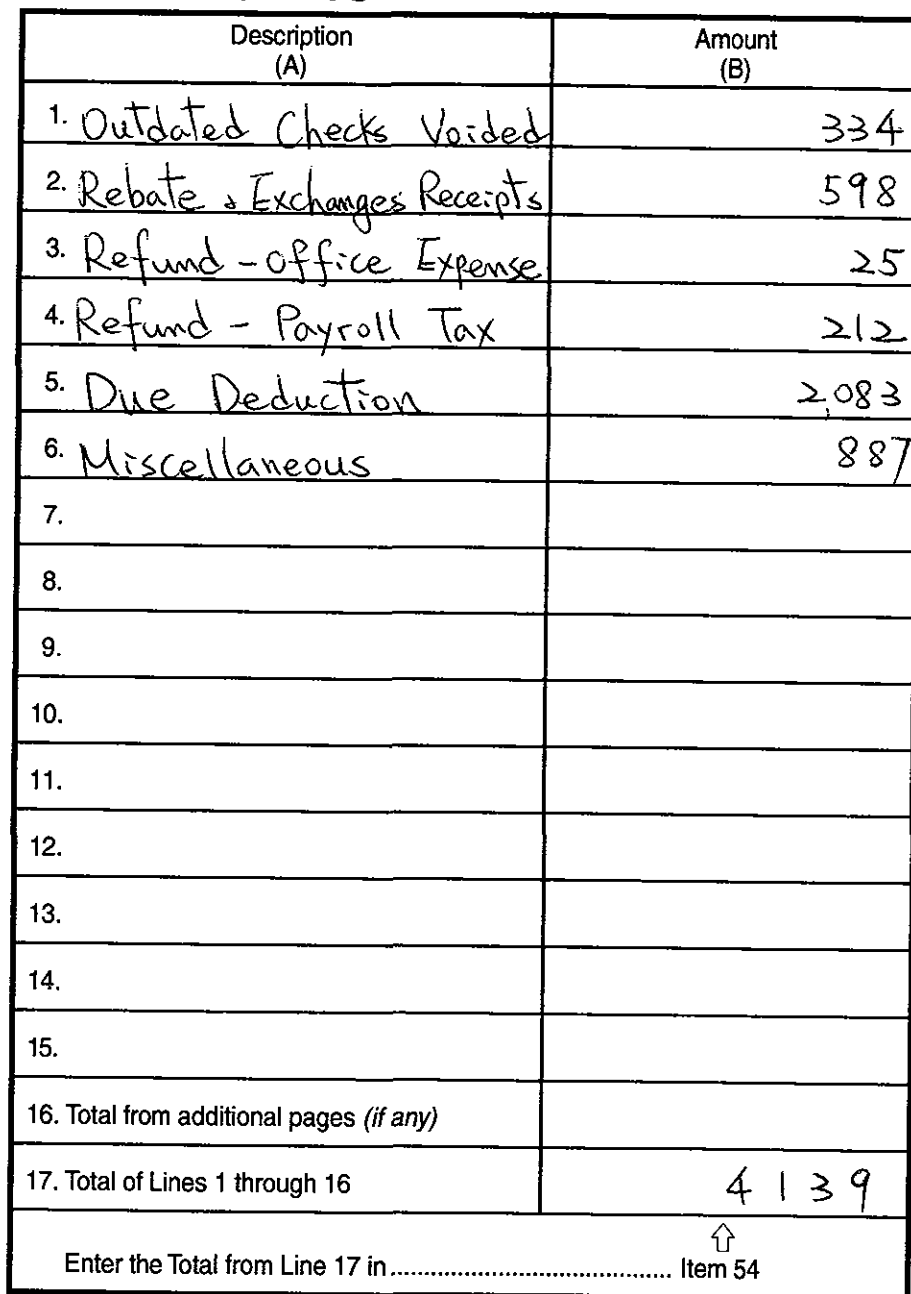 Description
(A)
Amount
(B)
1. Outdated Checks Voided 334
2. Rebate & Exchanges Receipts 598
3. Refund - office Expense 25
4. Refund - Payroll Tax 212
5. Due Deduction 2,083
6. Miscellaneous 887
7.
8.
9.
10.
11.
12.
13.
14.
15.
16. Total from additional pages (if any)
17. Total of Lines 1 through 16 4139
Enter the Total from Line 17 in ........................................ Item 54